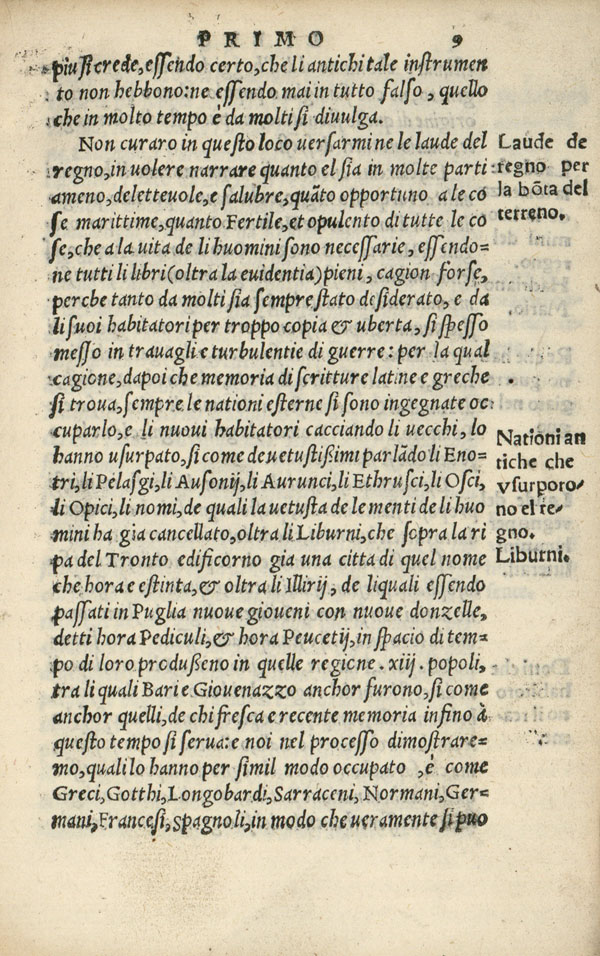 PRIMO 9
piu si crede, essendo certo, che li antichi tale instrumen
to non hebbono: ne essendo mai in tutto falso, quello
che in molto tempo è da molti si diuulga.
Non curaro in questo loco uersarmi ne le laude del
regno, in uolere narrare quanto el sia in molte parti
ameno, deletteuole, e salubre, quāto opportuno a le co
se marittime, quanto Fertile, et opulento di tutte le co
se, che a la uita de li huomini sono necessarie, essendo=
ne tutti li libri (oltra la euidentia) pieni, cagion forse,
perche tanto da molti sia sempre stato desiderato, e da
li suoi habitatori per troppo copia & uberta, si spesso
messo in trauagli e turbulentie di guerre: per la qual
cagione, dapoi che memoria di scritture latine e greche
si troua, sempre le nationi esterne si sono ingegnate oc
cuparlo, e li nuoui habitatori cacciando li uecchi, lo
hanno usurpato, si come de uetustissimi parlādo li Eno=
tri, li Pelasgi, li Ausonij, li Aurunci, li Ethrusci, li Osci,
li Opici, li nomi, de quali la uetusta de le menti de li huo
mini ha gia cancellato, oltra li Liburni, che sopra la ri
pa del Tronto edificorno gia una citta di quel nome
che hora e estinta, & oltra li Illirij, de li quali essendo
passati in Puglia nuoue gioueni con nuoue donzelle,
detti hora Pediculi, & hora Peucetij, in spacio di tem=
po di loro produsseno in quelle regione .xiij. popoli,
tra li quali Bari e Giouenazzo anchor furono, si come
anchor quelli, de chi fresca e recente memoria infino à
questo tempo si serua: e noi nel processo dimostrare=
mo, quali lo hanno per simil modo occupato, è come
Greci, Gotthi, Longobardi, Sarraceni, Normani, Ger=
mani, Francesi, spagnoli, in modo che ueramente si puo
Laude de
regno per
la bōta del
terreno.
Nationi an
tiche che
vsurporo=
no el re=
gno.
Liburni.